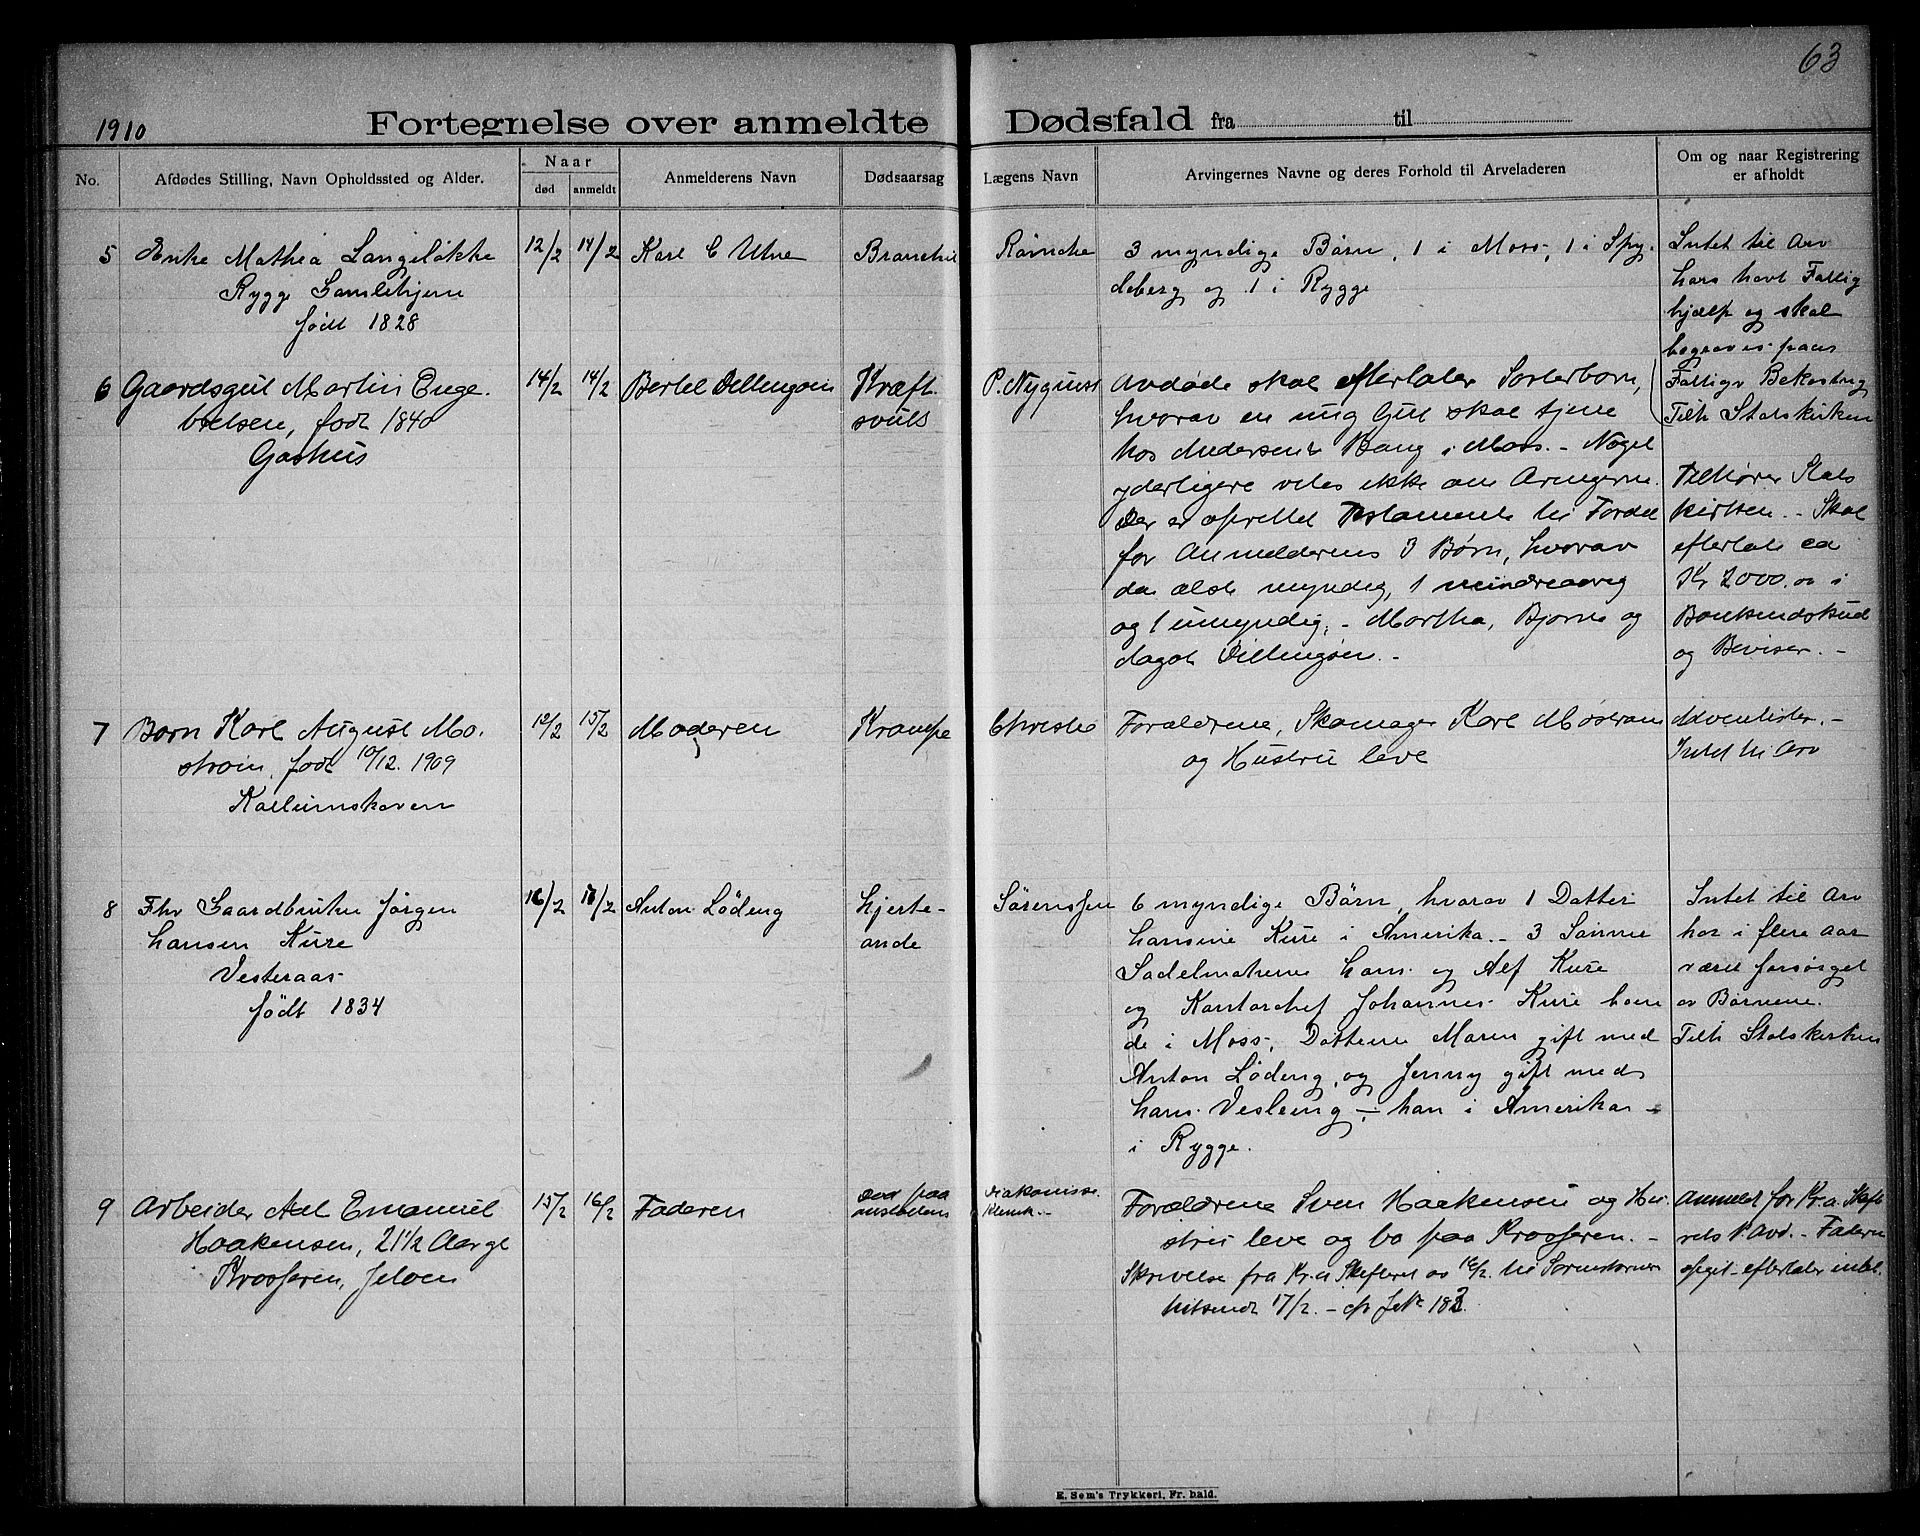 63
1910
Fortegnelse over anmeldte Dødsfald fra til
No.
Afdødes Stilling, Navn Opholdssted og Alder.
Naar
død
anmeldt
Anmelderens Navn
Dødsaarsag
Lægens Navn
Arvingernes Navne og deres Forhold til Arveladeren
Om og naar Registrering
er afholdt
5
Enke Mathea Langeløkke
Rygge Gamlehjem
født 1828
12/2
14/2
Karl C Utne
Rømcke
3 myndige Børn, 1 i Moss, 1 i Spy-
deberg og 1 i Rygge
Intet til Arv
hars havt Fattig
hjælp og skal
begraves paa
Fattigv Bekostng
Tilh Statskirken
6
Gaardsgut Martin Enge-
bretsen, født 1840
Gashus
14/2
14/2
Bertel Dillingøen
Kræft-
svulst
P. Nyquist
Avdøde skal efterlate Søsterbørn,
hvorav en ung Gut skal tjene
hos Andersen & Bang i Moss. - Noget
yderligere vites ikke om Arvingerne.
Der er oprettet Testamente til Fordel
for Anmelderens 3 Børn, hvorav
da ælste myndig, 1 mindreaarig
og 1 umyndig, - Martha, Bjarne og
Dagot Dillingøen. -
Tilhører Stats
kirken. - Skal
efterlate ca
Kr 2000.00 i
Bankindskud
og Beviser. -
7
Barn Karl August Mo-
strøm, født 10/12. 1909
Kallumskoven
15/2
Moderen
Krampe
Christie
Forældrene, Skomager Karl Mostrøm
og Hustru leve
Adventister. -
Intet til Arv
8
Fhv Gaardbruker Jørgen
Hansen Kure
Vesteraas
født 1834
16/2
Anton Løding
Hjerte-
onde
Sørenssen
6 myndige Børn, hvorav 1 Datter
Hansine Kure i Amerika. - 3 Sønner
Sadelmakerne Hans og Alf Kure
og Kontorchef Johannes Kure boen
de i Moss, Døttrene Maren gift med
Anton Løding, og Jenny gift med
Hans Vesleng - han i Amerika -
i Rygge.
Intet til Arv
har i flere Aar
været forsørget
av Børnene.
Tilh Statskirken
9
Arbeider Axel Emanuel
Haakensen, 21 1/2 Aar gl
Krosseren, Jeløen
15/2
16/2
Faderen
Død paa
anstalten
Diakonisse-
klinik. -
Forældrene Sven Haakensen og Hu-
stru leve og bo paa Krosseren. -
Skrivelse fra Kr.a Skifteret av 16/2. til
hitsendt 17/2. - cfr Jr 183.
Anmeldt for Kr.a. Skifte
rets 1 Avd. - Faderen
opgit - efterlater intet.
E. Sem's Trykkeri, Fr. hald.